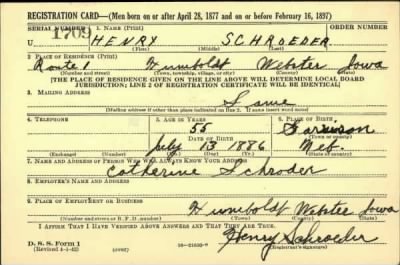 REGISTRATION CARD—(Men born on or after April 28, 1877 and on or before February 16, 1897)
SERIAL NUMBER 1. NAME (Print) ORDER NUMBER
U 1709 HENRY SCHROEDER
(First) (Middle) (Last)
2. PLACE OF RESIDENCE (Print)
Route 1 Humboldt Webster Iowa
(Number and street) (Town, township, village, or city) (County) (State)
[THE PLACE OF RESIDENCE GIVEN ON THE LINE ABOVE WILL DETERMINE LOCAL BOARD
JURISDICTION; LINE 2 OF REGISTRATION CERTIFICATE WILL BE IDENTICAL]
3. MAILING ADDRESS
Same
[Mailing address if other than place indicated on line 2. If same insert word same]
4. TELEPHONE 5. AGE IN YEARS 6. PLACE OF BIRTH
55 Garrison
DATE OF BIRTH (Town or county)
July 13 1886 Neb.
(Exchange) (Number) (Mo.) (Day) (Yr.) (State or country)
7. NAME AND ADDRESS OF PERSON WHO WILL ALWAYS KNOW YOUR ADDRESS
Catherine Schroder
8. EMPLOYER'S NAME AND ADDRESS
9. PLACE OF EMPLOYMENT OR BUSINESS
Humboldt Webster Iowa
(Number and street or R. F. D. number) (Town) (County) (State)
I AFFIRM THAT I HAVE VERIFIED ABOVE ANSWERS AND THAT THEY ARE TRUE.
D. S. S. Form 1
(Revised 4-1-42) (over) Henry Schroeder
(Registrant's signature)